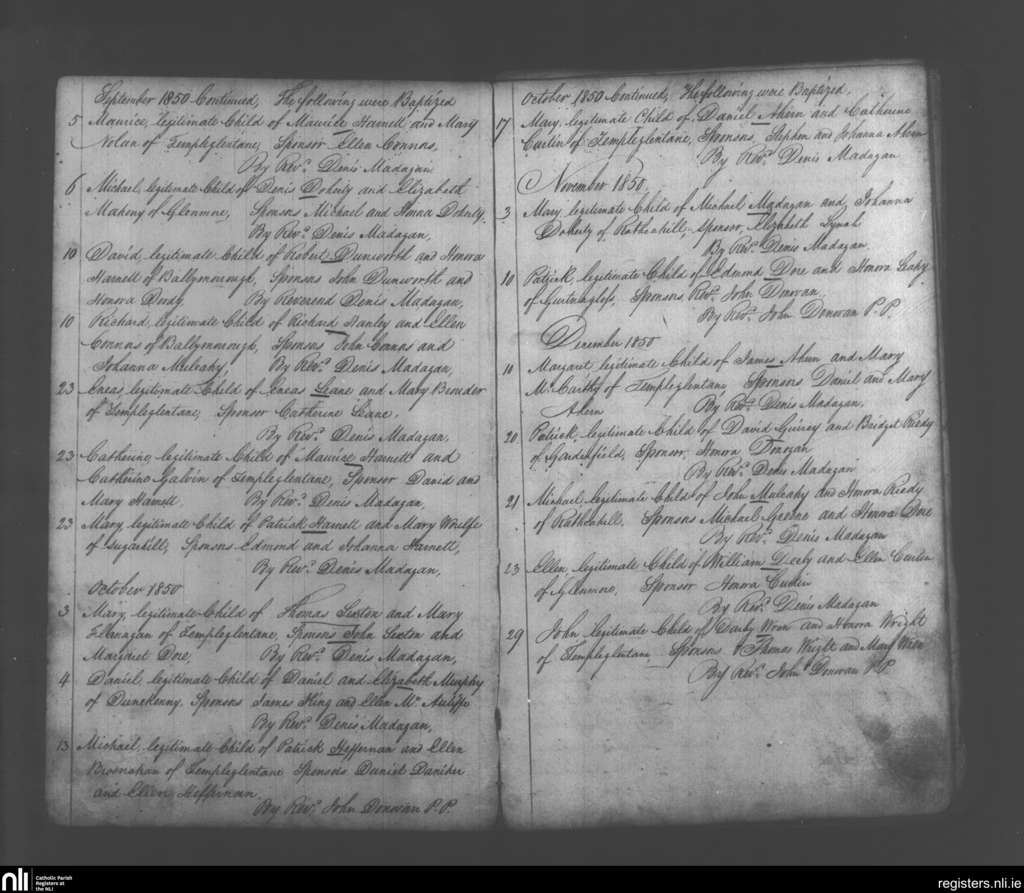 September 1850 Continued, The following were Baptized
5 Maurice, legitimate Child of Maurice Harnett and Mary
Nolan of Templeglentane, Sponsor Ellen Connors,
By Revd. Denis Madagan
6 Michael, legitimate Child of Denis Doherty and Elizabeth
Mahony of Glenmore, Sponsors Michael and Honna Doherty.
By Revd. Denis Madagan,
10 David, legitimate Child of Robert Dunworth and Honora
Harnett of Ballymorough, Sponsors John Dunworth and
Honora Doody, By Reverend Denis Madagan,
10 Richard, legitimate Child of Richard Hanley and Ellen
Connors of Ballymorough, Sponsors John Connors and
Johanna Mulcahy, By Revd. Denis Madagan,
23 Eneas, legitimate Child of Eneas Leane and Mary Brouder
of Templeglentane, Sponsor Catherine Leane,
By Revd. Denis Madagan,
23 Catherine, legitimate Child of Maurice Harnett and
Catherine Galvin of Templeglentane, Sponsor David and
Mary Harnett By Revd. Denis Madagan,
23 Mary, legitimate Child of Patrick Harnett and Mary Woulfe
of Sugarhill, Sponsors Edmond and Johanna Harnett,
By Revd. Denis Madagan,
October 1850
3 Mary, legitimate Child of Thomas Sexton and Mary
Flanagan of Templeglentane, Sponsors John Sexton and
Margaret Dore, By Revd. Denis Madagan,
4 Daniel, legitimate Child of Daniel and Elizabeth Murphy
of Dunekenny. Sponsors James King and Ellen Mc. Auliffe
By Revd. Denis Madagan,
13 Michael, legitimate Child of Patrick Heffernan and Ellen
Brosnahan of Templeglentane Sponsors Daniel Daniher
and Ellen Heffernan
By Revd. John Donovan P.P.
October 1850 Continued; The following were Baptized,
17 Mary, legitimate Child of Daniel Ahern and Catherine
Curtin of Templeglentane, Sponsors, Stephen and Johanna Ahern
By Revd. Denis Madagan
November 1850.
3 Mary, legitimate Child of Michael Madagan and Johanna
Doherty of Rathcahill, Sponsor, Elizabeth Lynch
By Revd. Denis Madagan
10 Patrick, legitimate Child of Edmond Dore and Honora Leahy
of Gurtnagloss, Sponsors, Revd. John Donovan,
By Revd. John Donovan P.P.
December 1850
11 Margaret, legitimate Child of James Ahern and Mary
Mc. Carthy of Templeglentane Sponsors Daniel and Mary
Ahern By Revd. Denis Madagan.
20 Patrick, legitimate Child of David Guiney and Bridget Reidy
of Gardenfield, Sponsor, Honora Donovan
By Revd. Denis Madagan
21 Michael, legitimate Child of John Mulcahy and Honora Reidy
of Rathcahill, Sponsors Michael Greene and Honora Dore
By Revd. Denis Madagan
23 Ellen, legitimate Child of William Deely and Ellen Curtin
of Glenmore, Sponsor Honora Curtin
By Revd. Denis Madagan
29 John legitimate Child of Darby Wren and Honora Wright
of Templeglentane Sponsors Thomas Wright and Mary Wren
By Revd. John Donovan P.P.
nli
Catholic Parish
Registers at
the NLI
registers.nli.ie